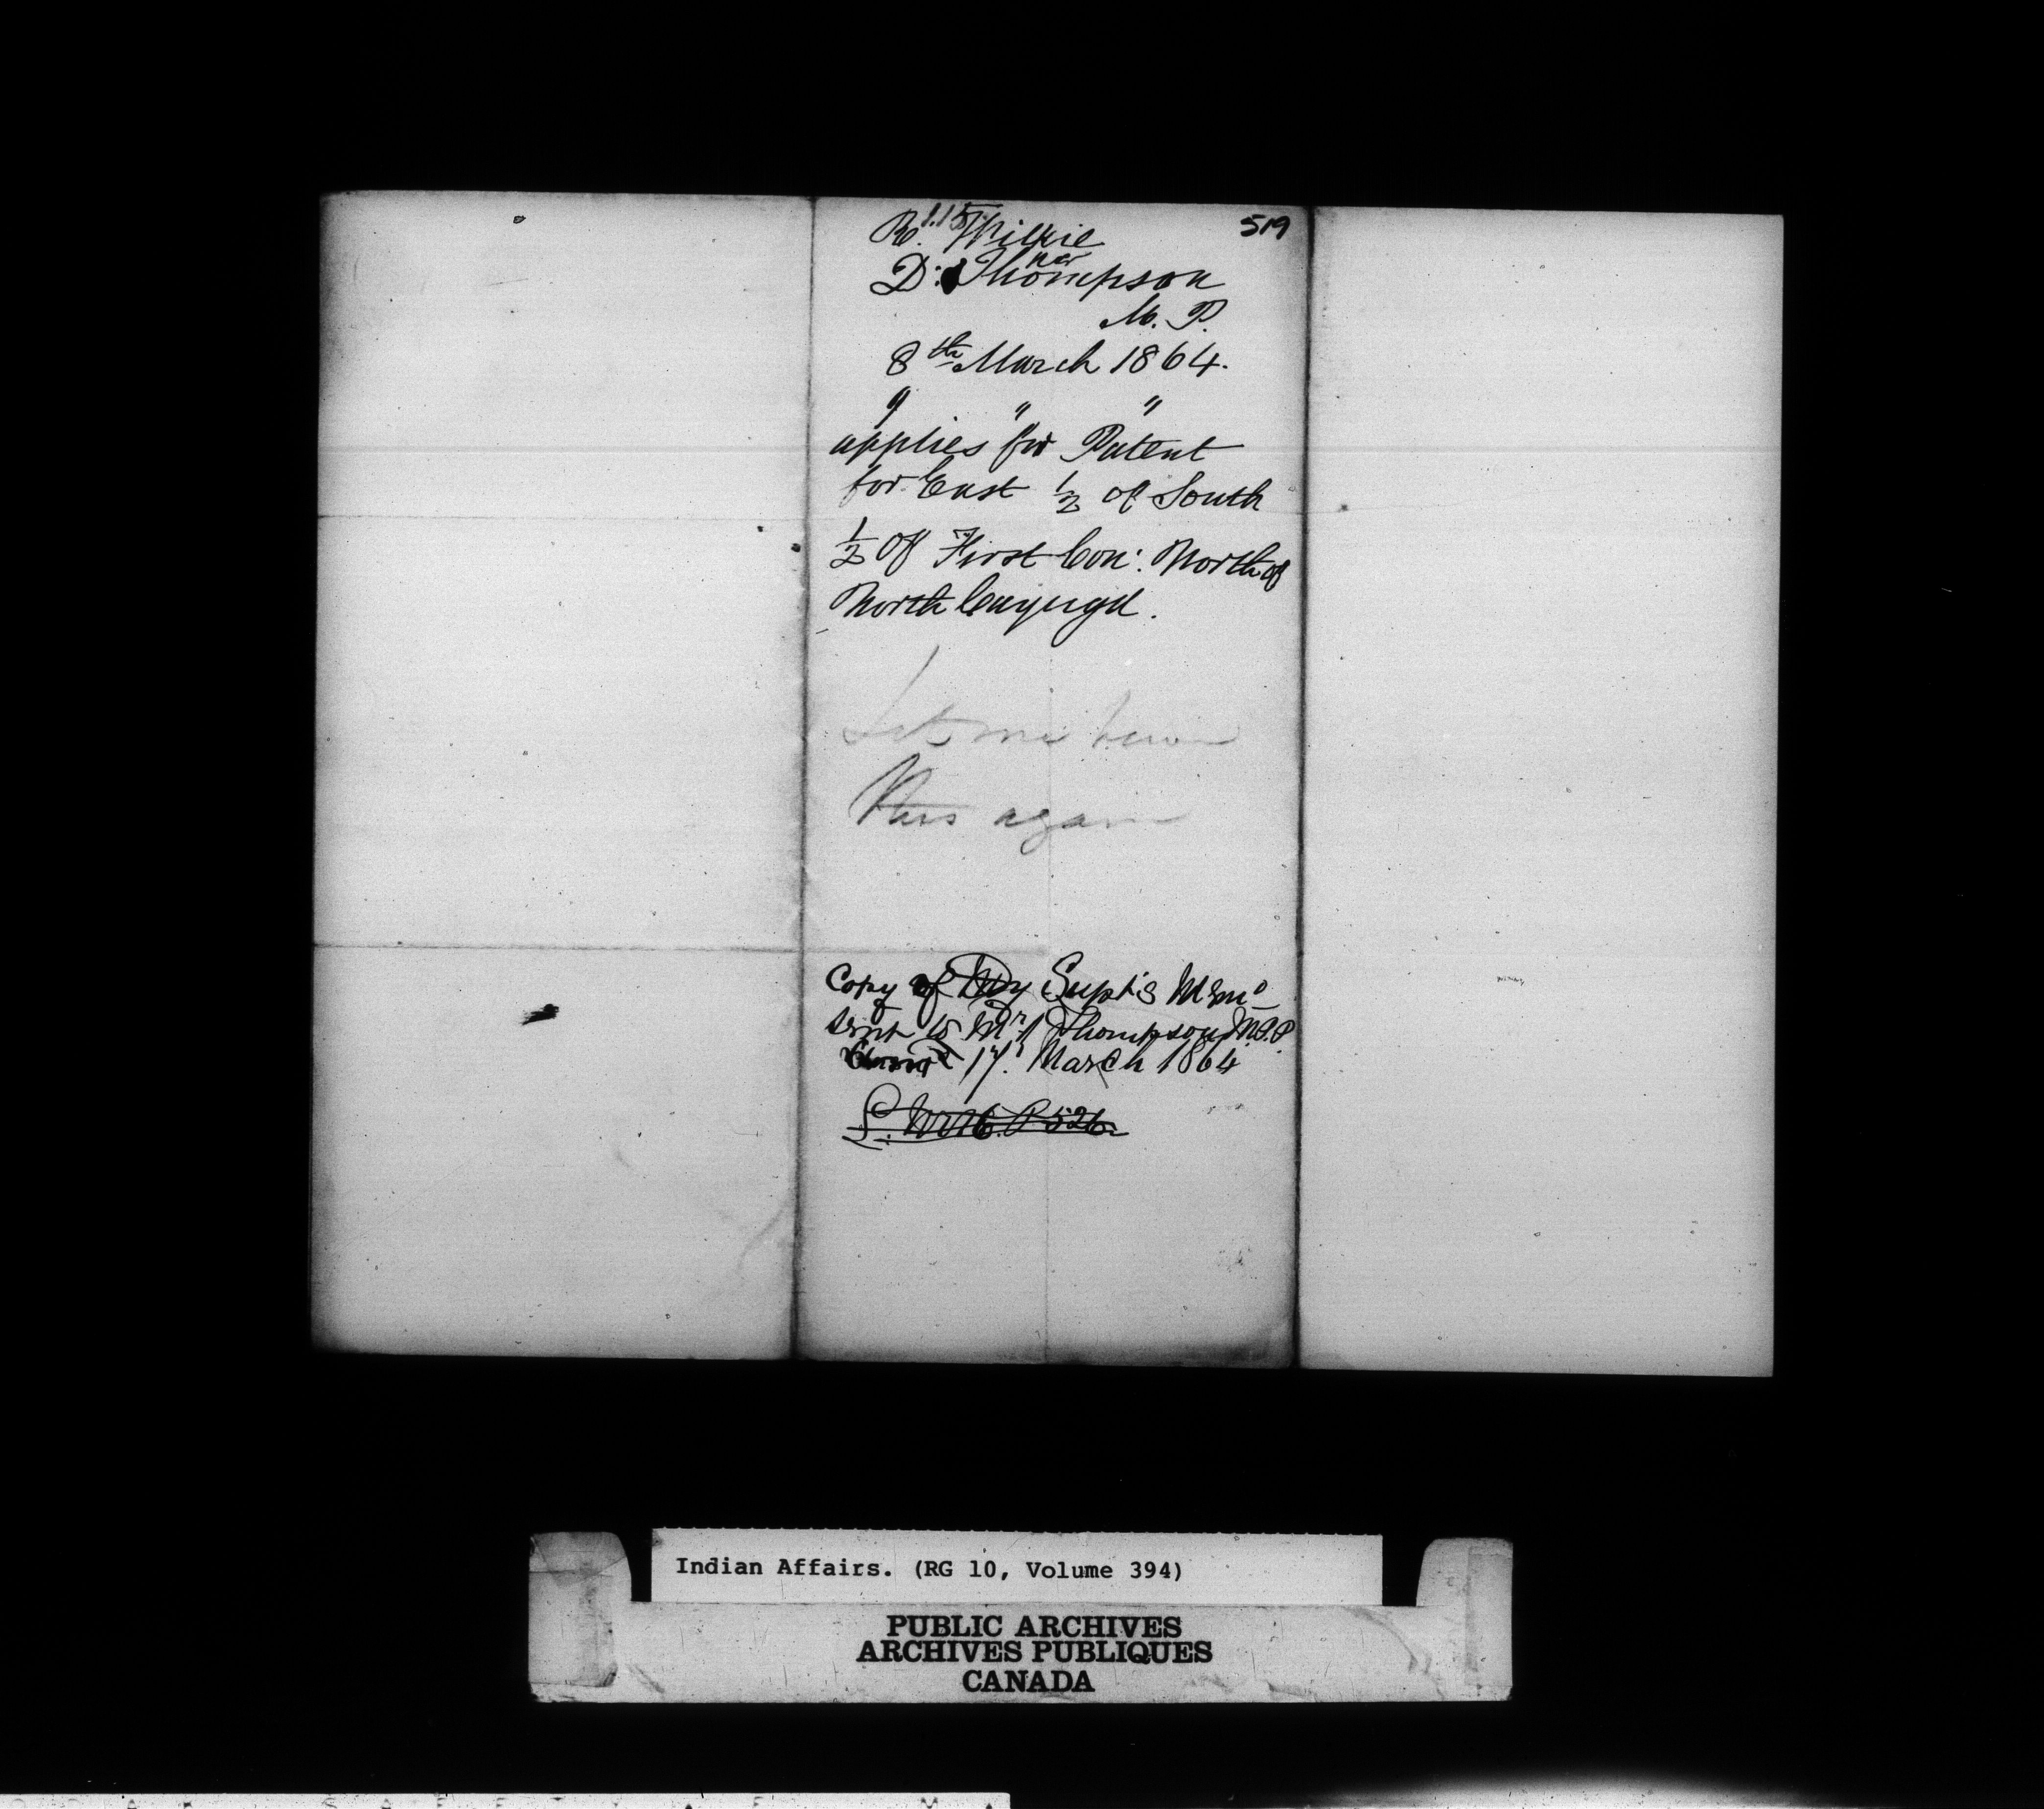 519
R. Wilkie
per
D: Thompson
M. P.
8th March 1864.
" " "
applies for Patent
for East 1/2 of South
1/2 Of First Con: North of
North Cayuga.
Let me have
this again
Copy of Dy Supt's Memo
sent to Mr Thompson M.P.P.
17. March 1864
P 526
Indian Affairs. (RG 10, Volume 394)
PUBLIC ARCHIVES
ARCHIVES PUBLIQUES
CANADA